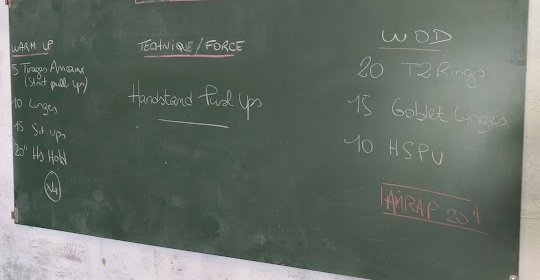 WARM UP
5 Tirages Anneaux
(strict pull ups)
10 Lunges
15 Sit ups
20" HS Hold
x4
TECHNIQUE/FORCE
Handstand Push Ups
WOD
20 T2Rings
15 Goblet Lunges
10 HSPU
AMRAP 20'